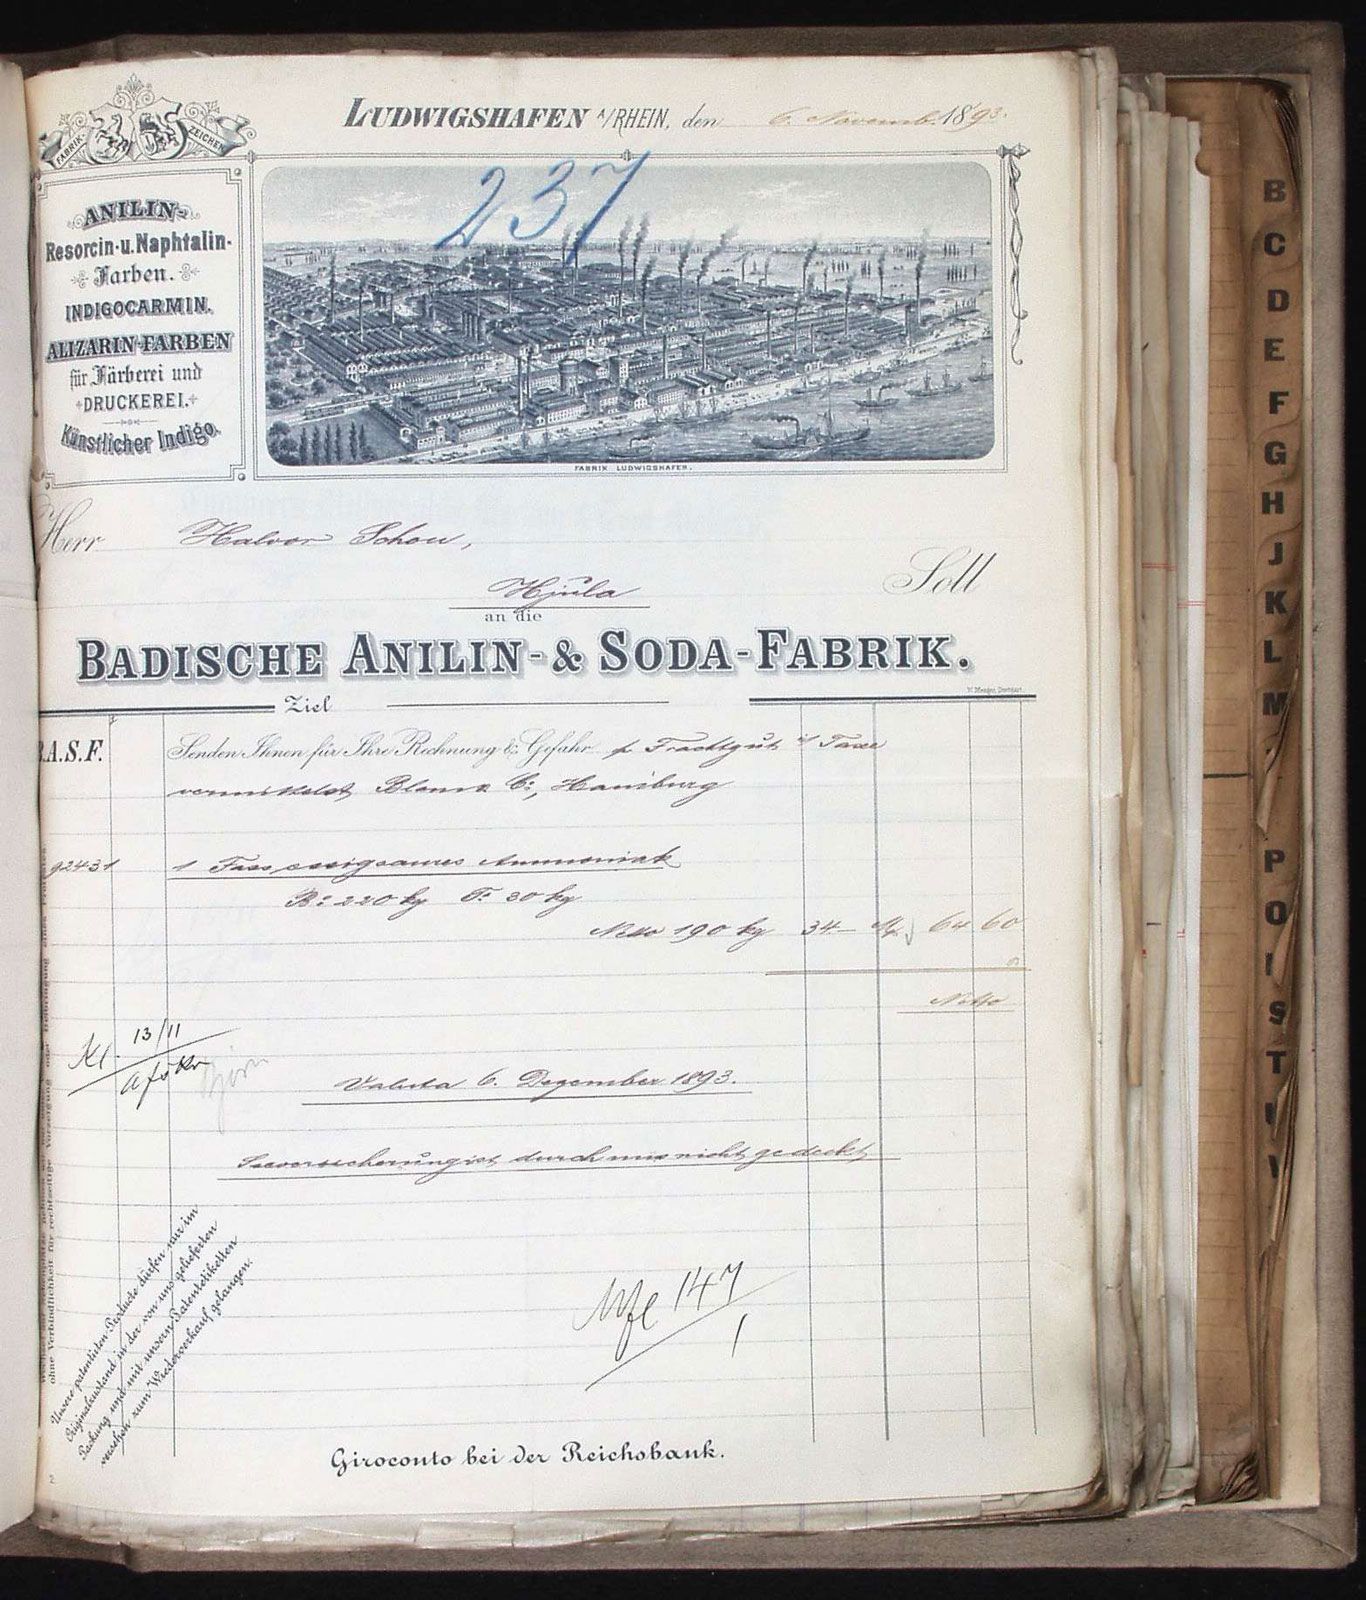 LUDWIGSHAFEN A/RHEIN, den 6. Novemb. 1893.
FABRIK ZEICHEN
237
ANILIN-
Resorcin-u. Naphtalin-
Farben.
INDIGOCARMIN.
ALIZARIN-FARBEN
für Färberei und
DRUCKEREI.
Künstlicher Indigo.
FABRIK LUDWIGSHAFEN.
Herr Halvor Schou,
Hjula
Soll
an die
BADISCHE ANILIN- & SODA-FABRIK.
Ziel
.A.S.F.
Senden Ihnen für Ihre Rechnung & Gefahr p Frachtgut
vermittelst Hamburg
92431 1 Fass essigsaures Ammoniak
Bo 220 kg Ta 30 kg
Netto 190 kg 34 — M 64 60
Netto
13/11
Valuta 6. Dezember 1893.
Seeversicherung ist durch uns nicht gedeckt
ohne Verbindlichkeit für rechtzeitige Vorzeigung oder Beibringung eines Protestes
Unsere patentirten Producte dürfen nur im
Originalzustand in der von uns gelieferten
Packung und mit unsern Patentetiketten
versehen zum Wiederverkauf gelangen.
147
1
Giroconto bei der Reichsbank.
2
B
C
D
E
F
G
H
J
K
L
M
P
O
S
T